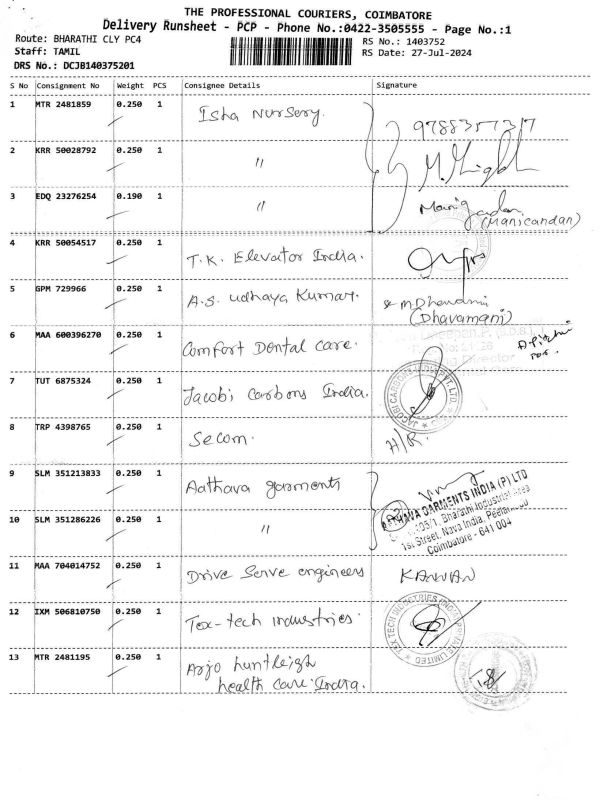 THE PROFESSIONAL COURIERS, COIMBATORE
Delivery Runsheet - PCP - Phone No.:0422-3505555 - Page No.:1
Route: BHARATHI CLY PC4
RS No.: 1403752
Staff: TAMIL
RS Date: 27-Jul-2024
DRS No.: DCJB140375201
S No Consignment No Weight PCS Consignee Details Signature
1 MTR 2481859 0.250 1 Isha Nursery.
2 KRR 50028792 0.250 1 "
3 EDQ 23276254 0.190 1 "
(Manicandan)
4 KRR 50054517 0.250 1 T.K. Elevator India.
5 GPM 729966 0.250 1 A.S. Udhaya Kumar.
(Dhavamani)
6 MAA 600396270 0.250 1 Comfort Dental Care.
7 TUT 6875324 0.250 1 Jacobi Carbons India.
JACOBI CARBONS INDIA PVT. LTD.
8 TRP 4398765 0.250 1 Secom.
H/R.
9 SLM 351213833 0.250 1 Aathava garments
GARMENTS INDIA (P) LTD
Bharathi Industrial Area
1st Street, Nava India,
Coimbatore - 641 004
10 SLM 351286226 0.250 1 "
11 MAA 704014752 0.250 1 Drive Serve engineers KANNAN
12 IXM 506810750 0.250 1 Tex-tech industries.
TEX TECH INDUSTRIES LIMITED
13 MTR 2481195 0.250 1 Arjo huntleigh
health care India.